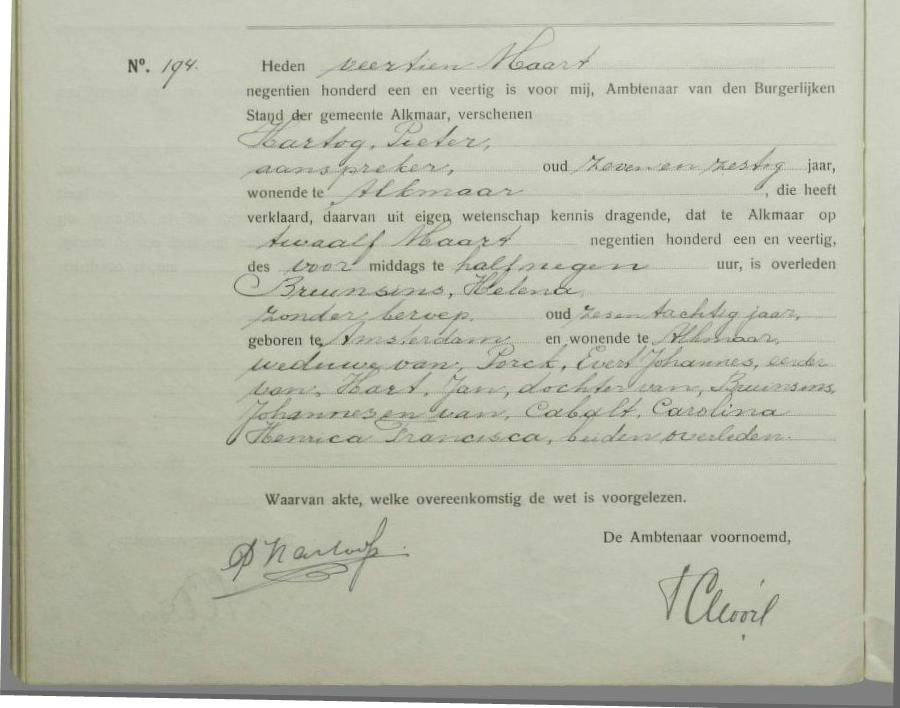 Nº. 194.
Heden veertien Maart
negentien honderd een en veertig is voor mij, Ambtenaar van den Burgerlijken
Stand der gemeente Alkmaar, verschenen
Hartog, Pieter,
aanspreker, oud zeven en zestig jaar,
wonende te Alkmaar , die heeft
verklaard, daarvan uit eigen wetenschap kennis dragende, dat te Alkmaar op
twaalf Maart negentien honderd een en veertig,
des voor middags te half negen uur, is overleden
Bruinsins, Helena,
zonder beroep, oud zes en tachtig jaar,
geboren te Amsterdam en wonende te Alkmaar,
weduwe van, Porck, Evert Johannes, eerder
van, Hart, Jan, dochter van, Bruinsins,
Johannes en van, Cabalt, Carolina
Henrica Francisca, beiden overleden.
Waarvan akte, welke overeenkomstig de wet is voorgelezen.
De Ambtenaar voornoemd,
P Hartog